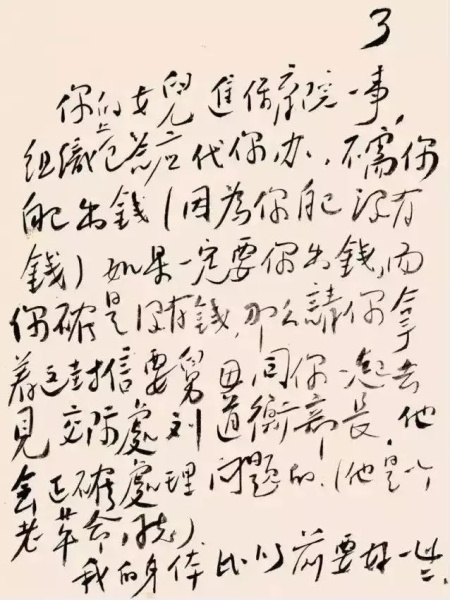 3
你的女兒進保育院一事，
组織已答应代你办，不需你
自己出錢（因為你自己没有
錢）如果一定要你出錢，而
你確是没有錢，那么請你拿
着这封信要舅母同你一起去
見交际處刘道衡部長，他
会正確處理问题的。（他是个
老革命同志）
我的身体比以前要好一些。